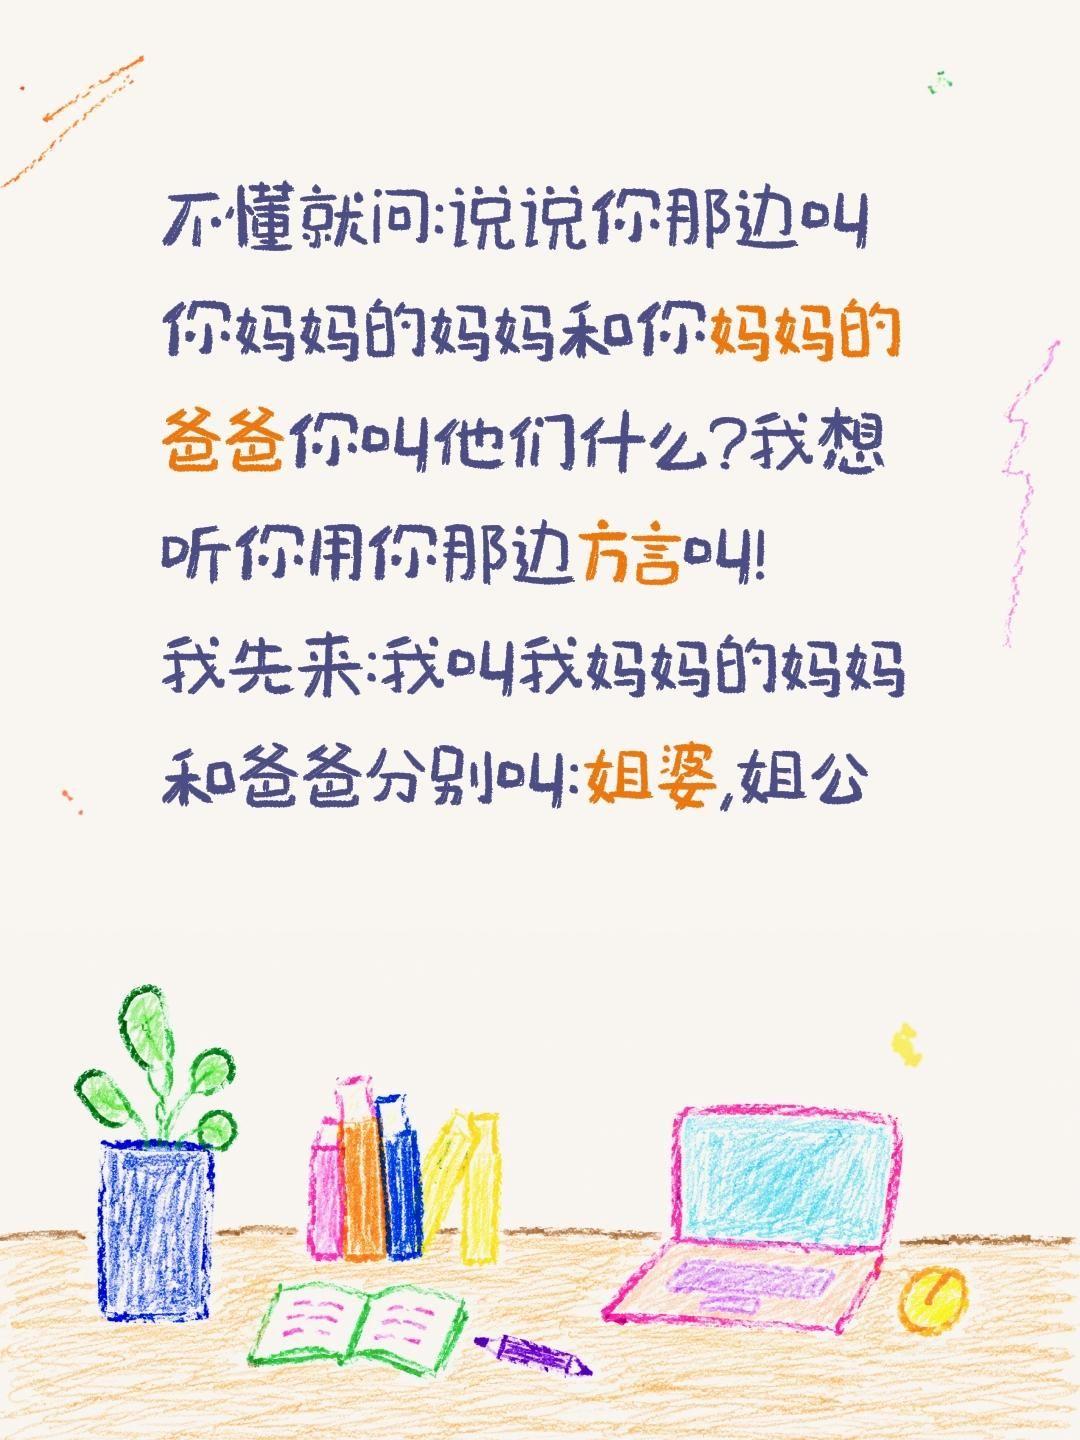 不懂就问:说说你那边叫
你妈妈的妈妈和你妈妈的
爸爸你叫他们什么?我想
听你用你那边方言叫!
我先来:我叫我妈妈的妈妈
和爸爸分别叫:姐婆,姐公